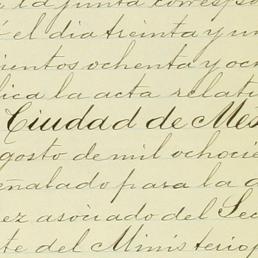 la junta corresp
el dia treinta y un
cientos ochenta y och
lica la acta relati
Ciudad de Méx
agosto de mil ochocie
eñalado para la a
ez asociado del Sec
te del Ministerio p